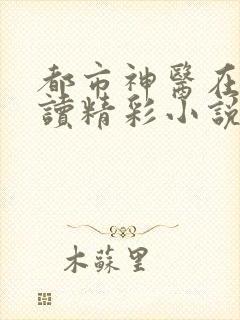 都市神醫在
讀精彩小說
木蘇里